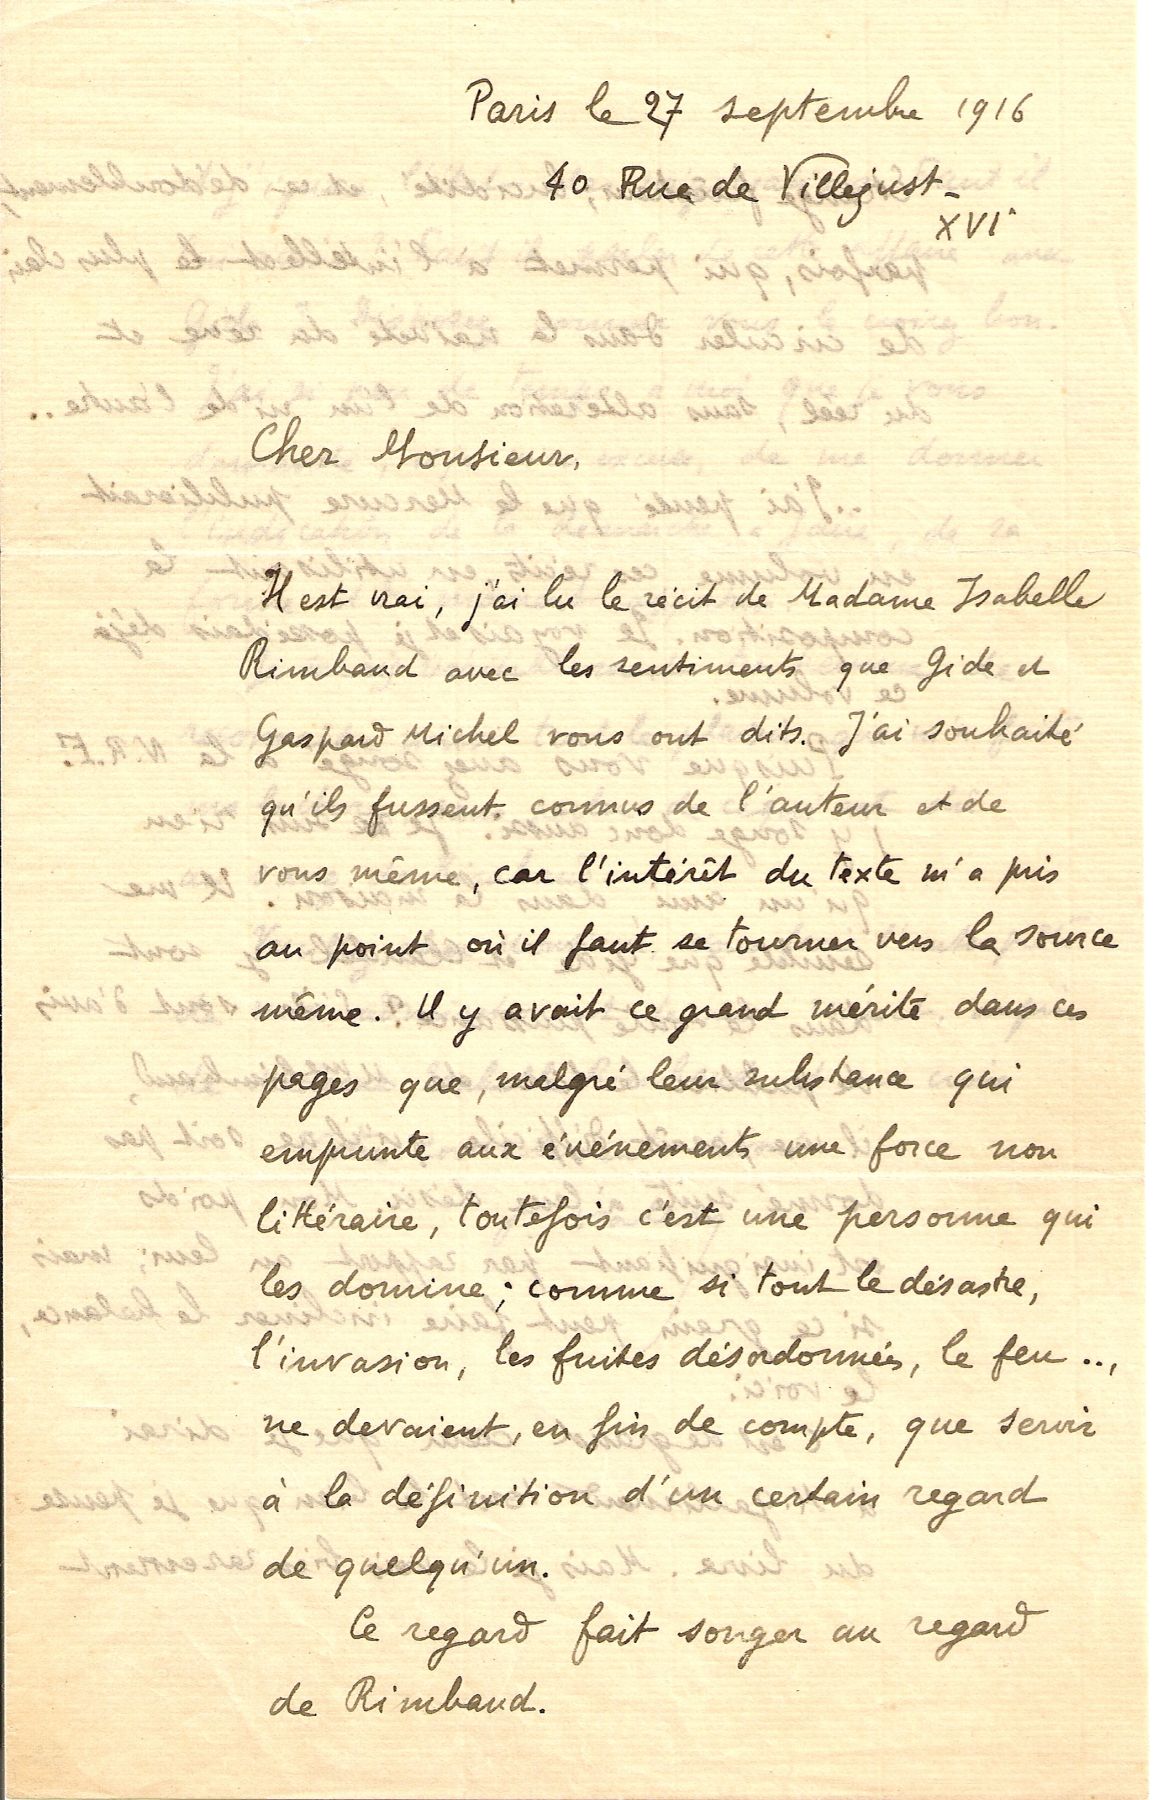 Paris le 27 septembre 1916
40 Rue de Villejust-
XVIe
Cher Monsieur,
Il est vrai, j'ai lu le récit de Madame Isabelle
Rimbaud avec les sentiments que Gide et
Gaspard Michel vous ont dits. J'ai souhaité
qu'ils fussent connus de l'auteur et de
vous même, car l'intérêt du texte m'a pris
au point où il faut se tourner vers la source
même. Il y avait ce grand mérite dans ces
pages que, malgré leur substance qui
emprunte aux événements une force non
littéraire, toutefois c'est une personne qui
les domine; comme si tout le désastre,
l'invasion, les fuites désordonnées, le feu ..,
ne devaient, en fin de compte, que servir
à la définition d'un certain regard
de quelqu'un.
Ce regard fait songer au regard
de Rimbaud.